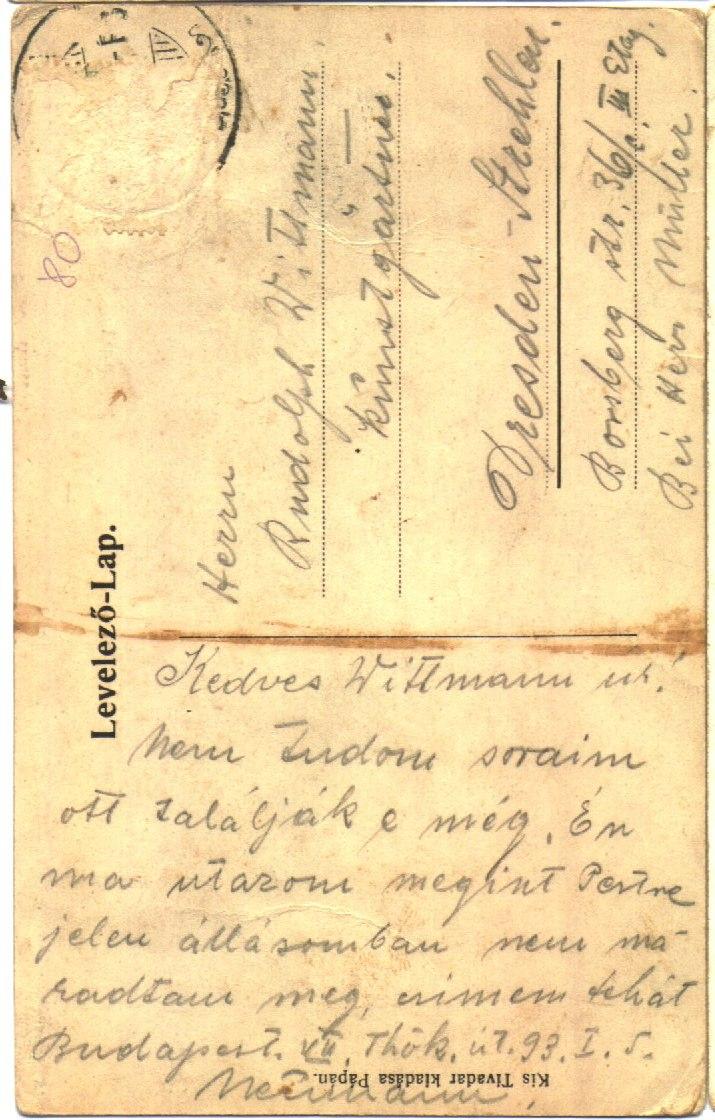 Levelező-Lap.
80
Herrn
Rudolph Wittmann.
Kunstgärtner.
Dresden-Strehlen.
Borsberg str. 36/c. III Etag.
Bei Herrn Müller.
Kedves Wittmann úr!
Nem tudom soraim
ott találják e még. Én
ma utazom megint Pestre
jelen állásomban nem ma
radtam meg, címem tehát
Budapest. VII. Thök. út. 93. I. 5.
Neumann.
Kis Tivadar kiadása Pápán.